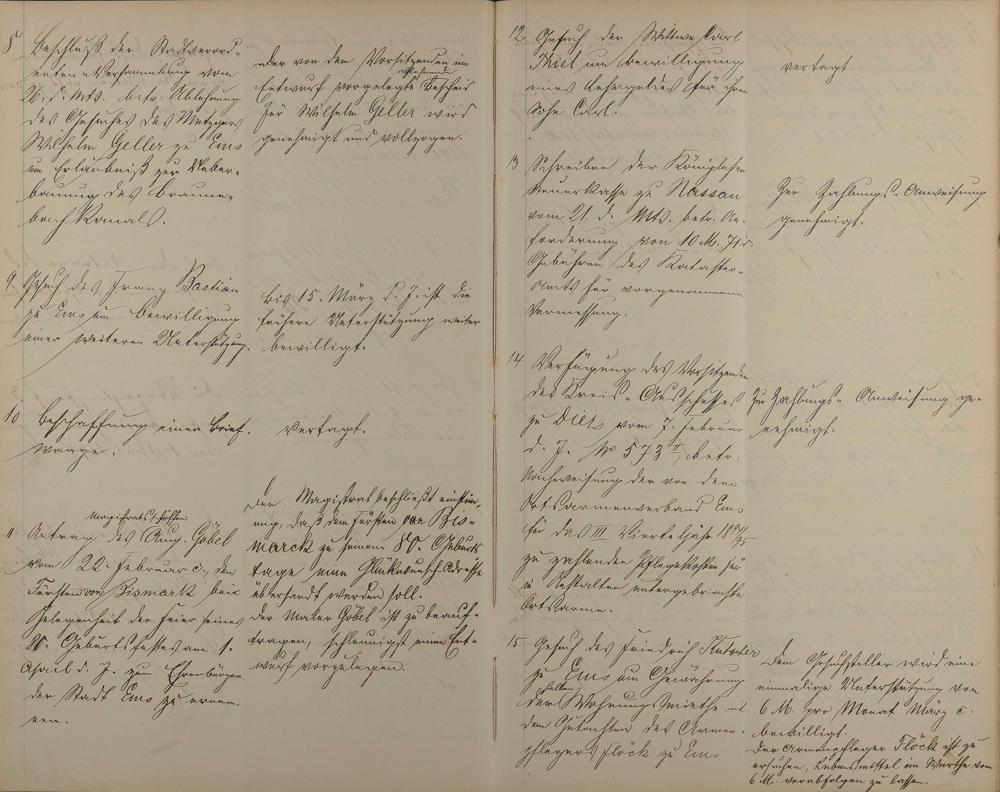 8 Beschluß der Stadtverord-
neten-Versammlung vom
26. d. Mts. betr. Ablehnung
des Gesuches des Metzgers
Wilhelm Geller zu Ems
um Erlaubniß zur Ueber-
bauung des Braune-
bach Kanals.
Der von dem Vorsitzenden im
ablehnende
Entwurf vorgelegte Bescheid
für Wilhelm Geller wird
genehmigt und vollzogen.
9 Gesuch des Franz Bastian
zu Ems um Bewilligung
einer weiteren Unterstützung.
Bis 15. März d. J. ist die
frühere Unterstützung weiter
bewilligt.
10 Beschaffung einer Brief-
waage.
Vertagt.
Magistratsschöffen
11 Antrag des Aug. Göbel
vom 22. Februar c., den
Fürsten von Bismark bei
Gelegenheit der Feier seines
80. Geburtsfestes am 1.
April d. J. zum Ehrenbürger
der Stadt Ems zu ernen-
nen.
Der Magistrat beschließt einstim-
mig, daß dem Fürsten von Bis-
marck zu seinem 80. Geburts
tage eine Glückwunsch-Adresse
übersandt werden soll.
Der Maler Göbel ist zu beauf-
tragen, schleunigst einen Ent-
wurf vorzulegen.
12 Gesuch der Wittwe Carl
Thiel um Bewilligung
eines Lehrgeldes für ihren
Sohn Carl.
vertagt
13 Schreiben der Königlichen
Steuerkasse zu Nassau
vom 21. d. Mts. betr. An-
forderung von 10 M.
Gebühren des Kataster-
Amts für vorgenommene
Vermessung.
Zur Zahlungs-Anweisung
genehmigt.
14 Verfügung des Vorsitzenden
des Kreis-Ausschusses
zu Diez vom 7. Februar
d. J. No 573 II, betr.
Nachweisung der von dem
Ortsarmenverband Ems
für das III Vierteljahr 1894/95
zu zahlenden Pflegekosten für
in Anstalten untergebrachte
Ortsarme.
Zur Zahlungs-Anweisung ge-
nehmigt.
15 Gesuch des Friedrich
zu Ems um Gewährung
der Wohnungsmiethe
dem Gutachten des Armen-
pflegers Flöck zu Ems.
Dem Gesuchsteller wird eine
einmalige Unterstützung von
6 M. pro Monat März c.
bewilligt.
Der Armenpfleger Flöck ist zu
ersuchen, Lebensmittel im Werthe von
6 M. verabfolgen zu lassen.